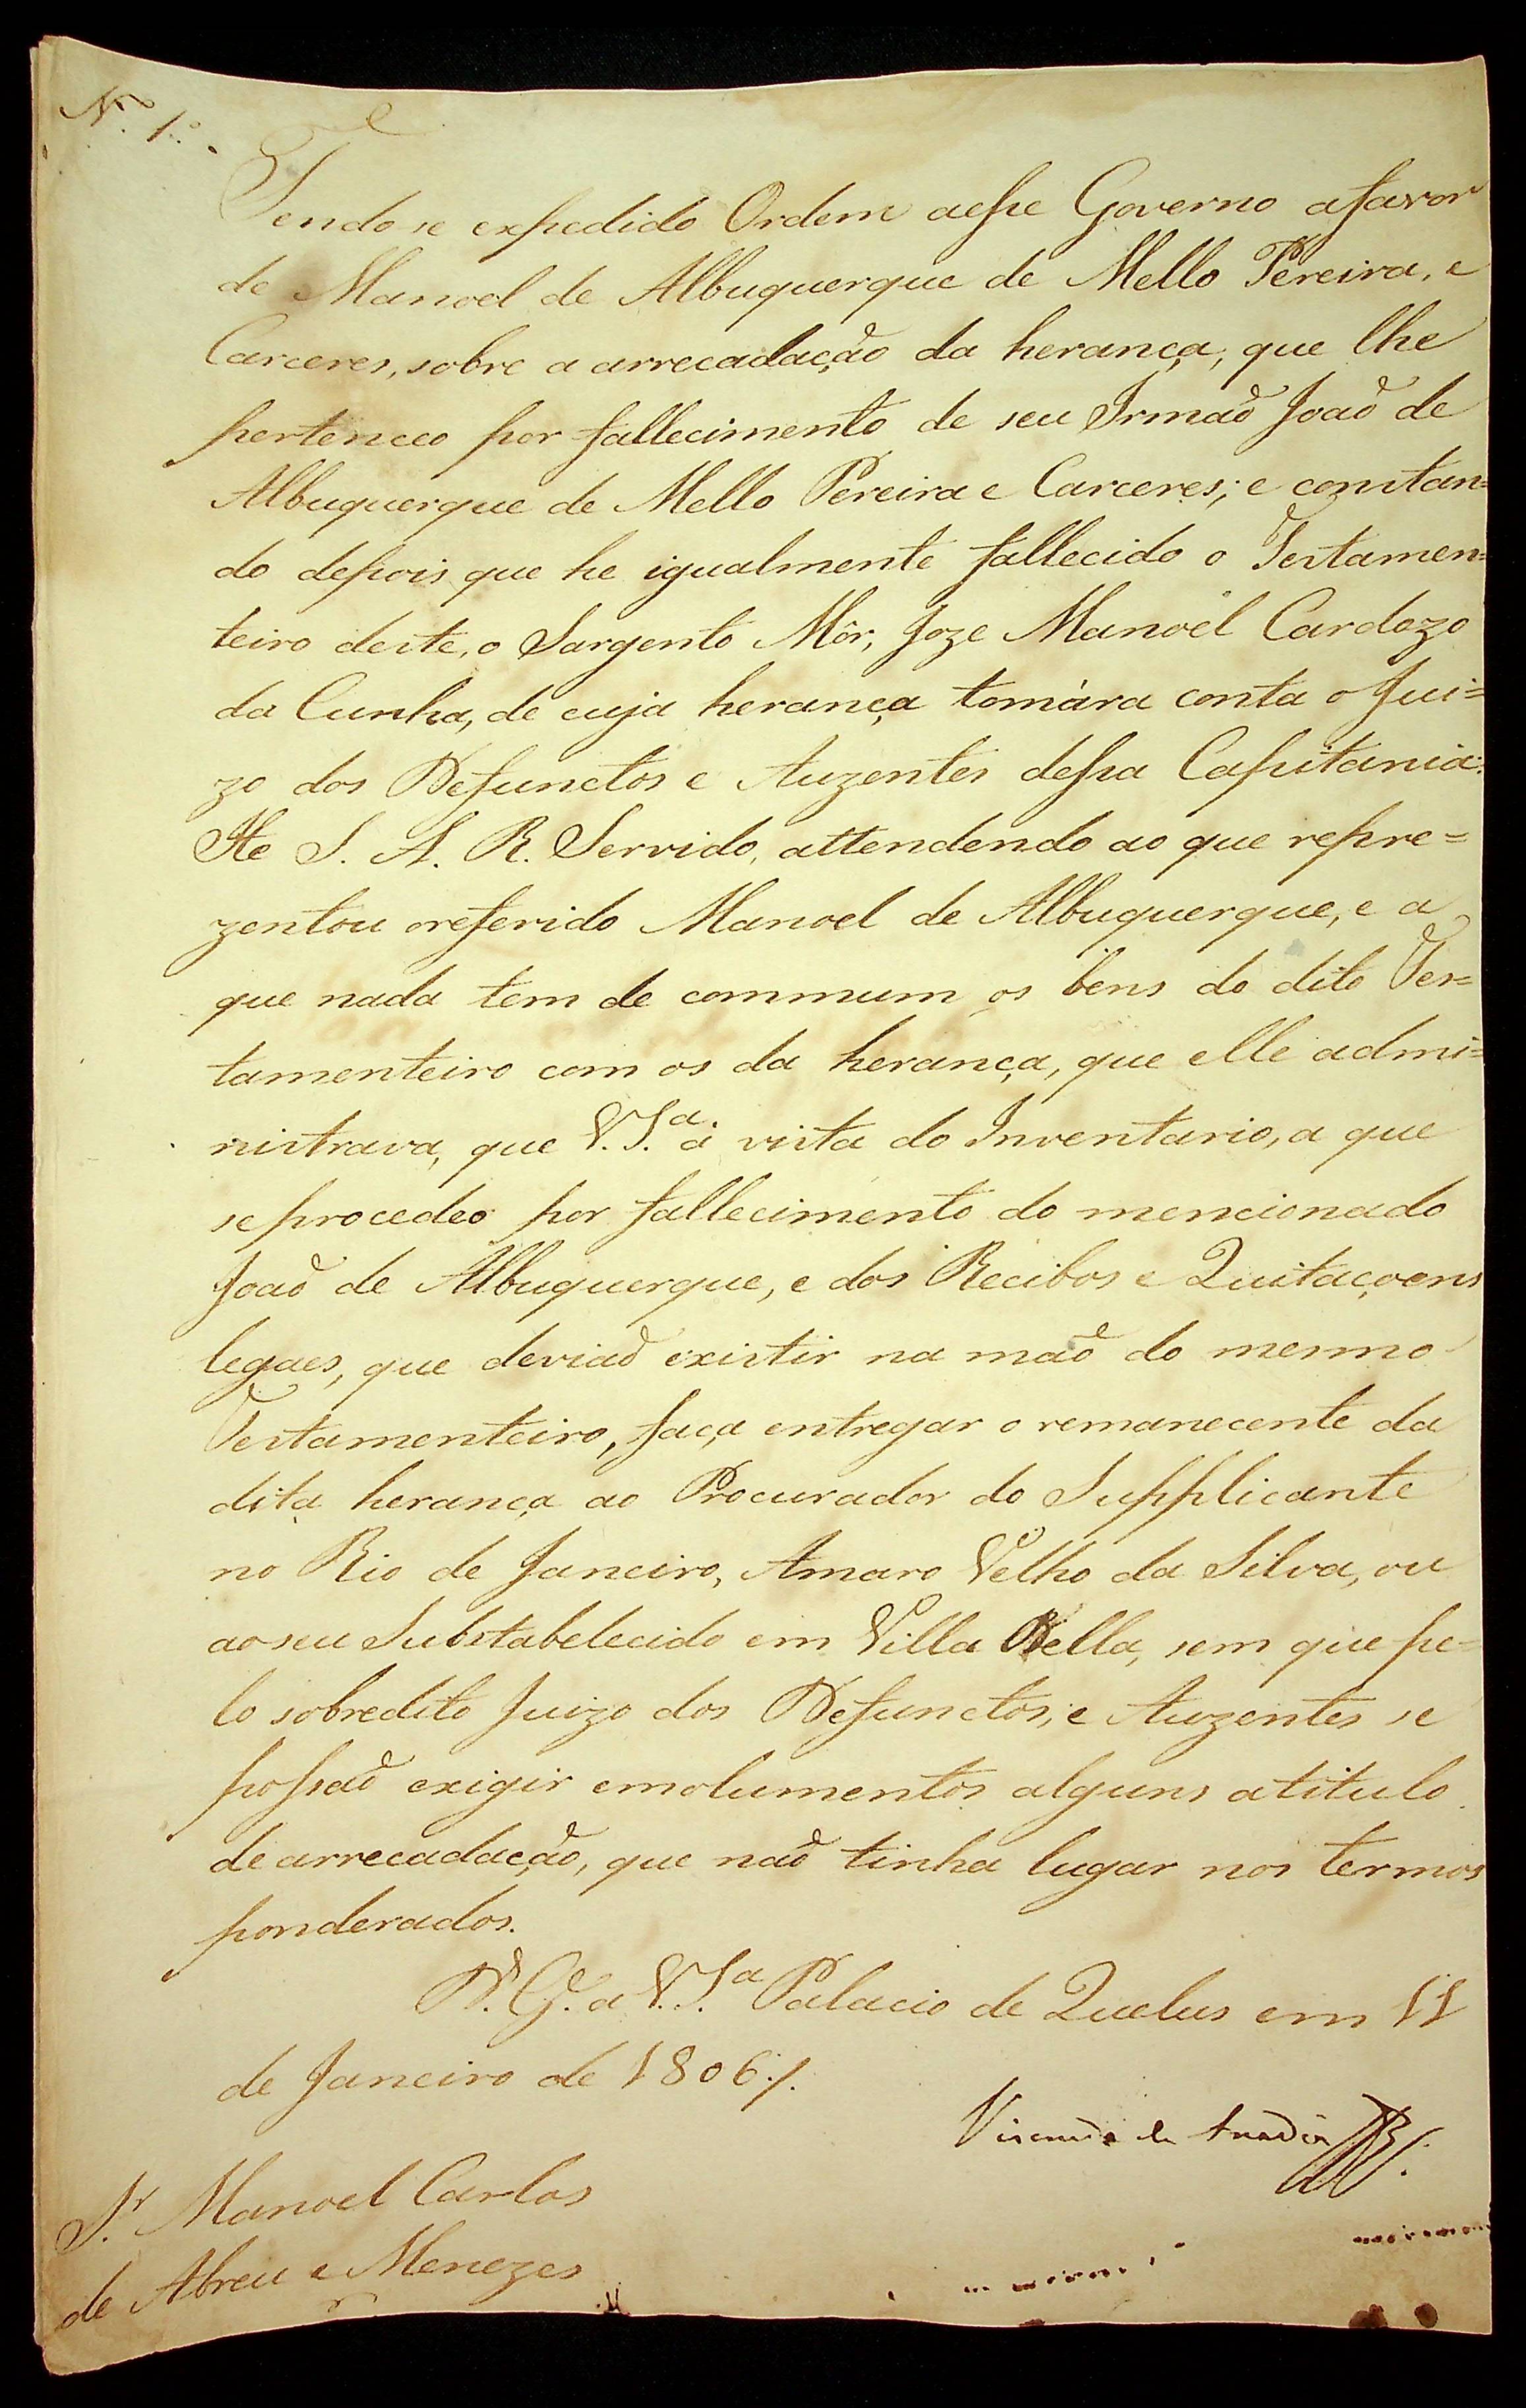 N.º 1.º
Tendo se expedido Ordem aesse Governo afavor
de Manoel de Albuquerque de Mello Pereira, e
Carceres, sobre a arrecadação da herança, que lhe
pertenceo por fallecimento de seu Irmaõ Joaõ de
Albuquerque de Mello Pereira e Carceres; e constan=
do depois que he igualmente fallecido o Testamen=
teiro deste, o Sargento Mór, Joze Manoel Cardozo
da Cunha, de cuja herança tomára conta o Jui=
zo dos Defunctos e Auzentes dessa Capitania:
He S. A. R. Servido, attendendo ao que repre=
zentou oreferido Manoel de Albuquerque, e a
que nada tem de commum os bens do dito Tes=
tamenteiro com os da herança, que elle admi=
nistrava, que V. S.ª á vista do Inventario, a que
se procedeo por fallecimento do mencionado
Joaõ de Albuquerque, e dos Recibos e Quitaçoens
legaes, que deviaõ existir na maõ do mesmo
Testamenteiro, faça entregar o remanecente da
dita herança ao Procurador do Supplicante
no Rio de Janeiro, Amaro Velho da Silva, ou
aoseu Substabelecido em Villa Bella, sem que pe=
lo sobredito Juizo dos Defunctos, e Auzentes se
possaõ exigir emolumentos alguns atitulo
de arrecadação, que naõ tinha lugar nos termos
ponderados.
D.s G.e a V. S.ª Palacio de Quelus em 11
de Janeiro de 1806./.
Visconde de Anadia
S.r Manoel Carlos
de Abreu e Menezes